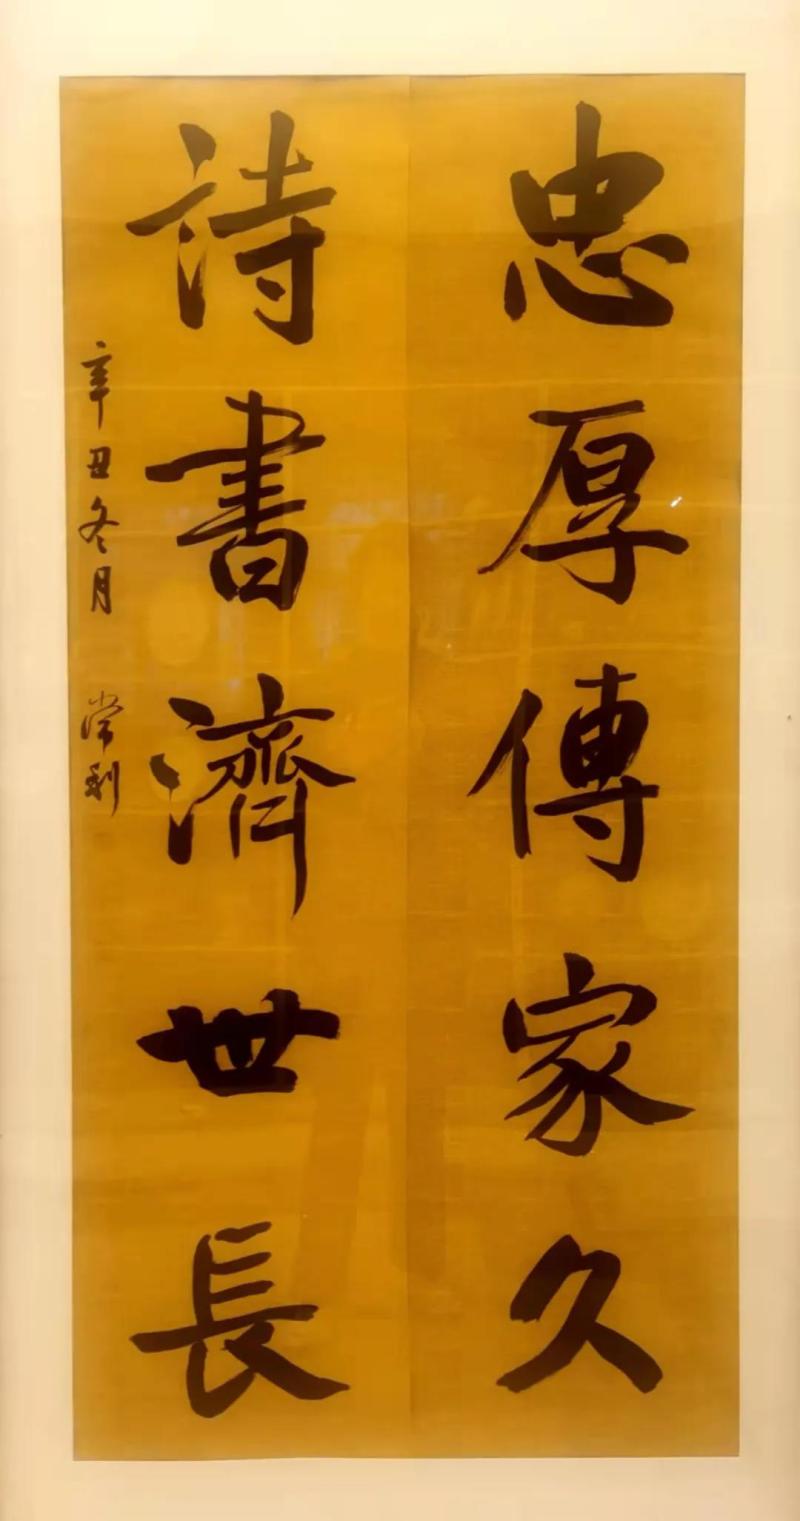 忠厚傳家久
詩書濟世長
辛丑冬月 常利